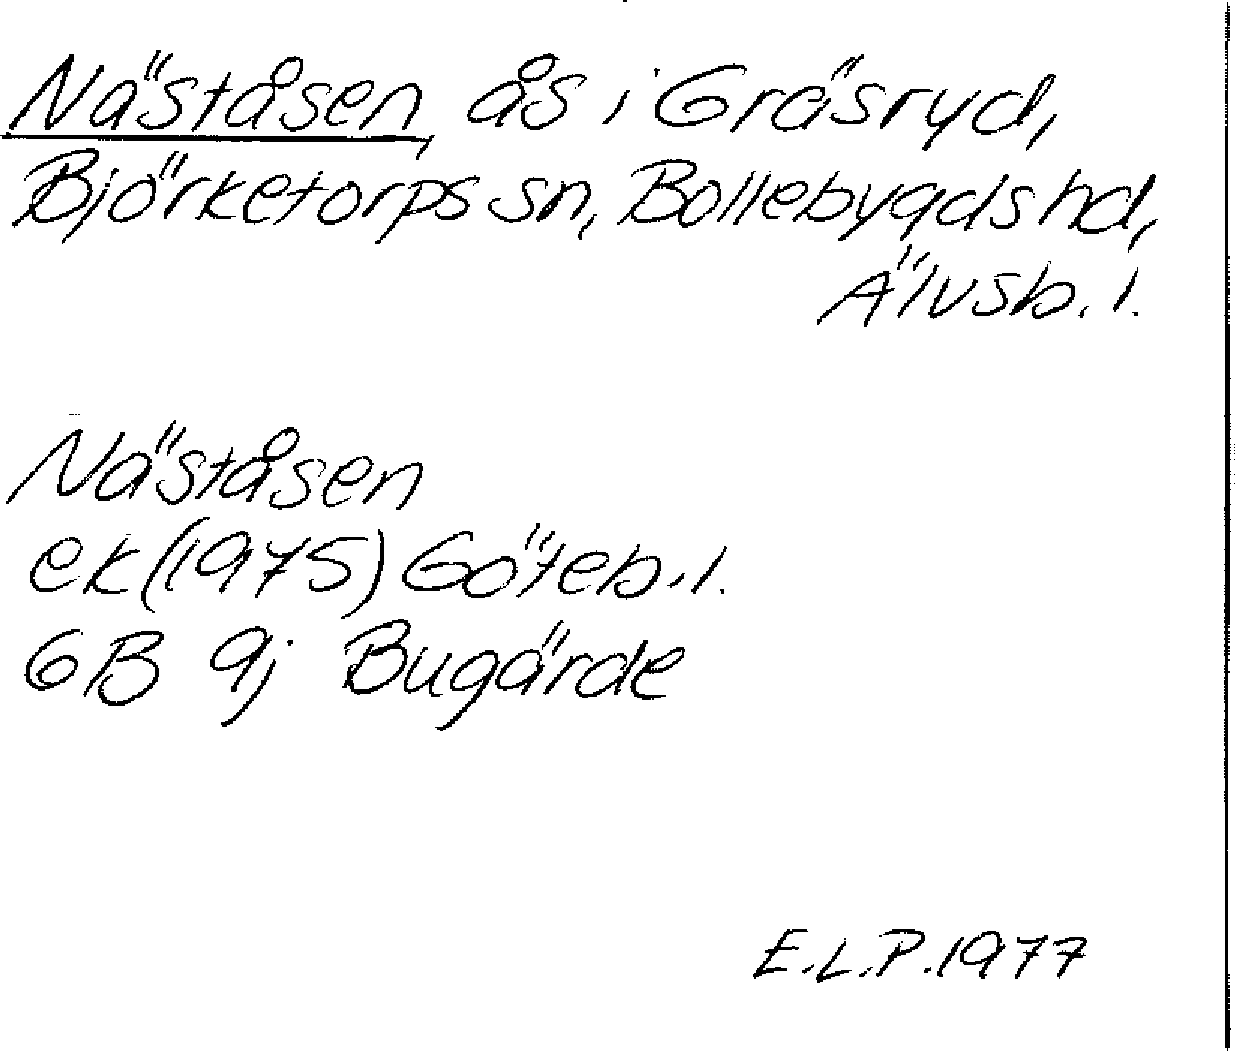 Näståsen, ås i Gräsryd,
Björketorps sn, Bollebygds hd,
Älvsb. l.
Näståsen
ek (1975) Göteb. l.
6B 9j Bugärde
E.L.P. 1977